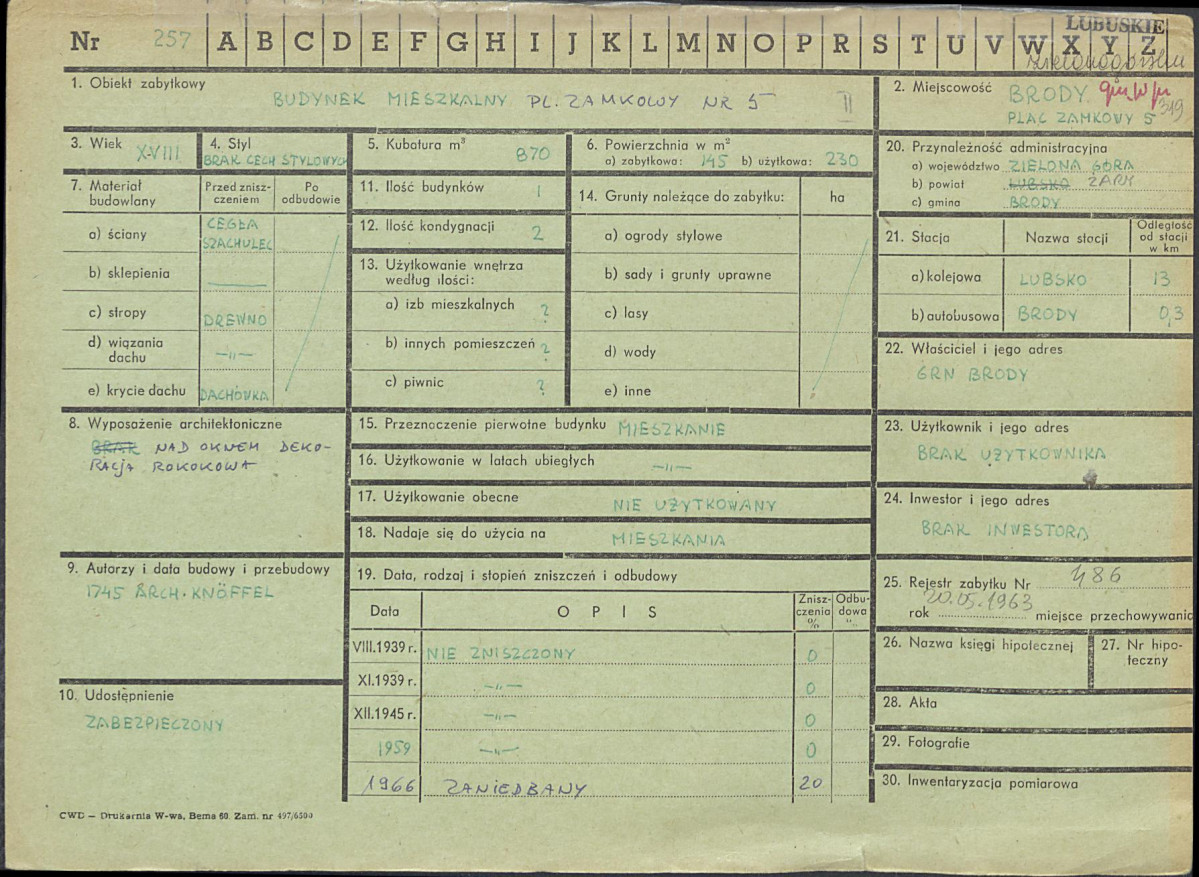 LUBUSKIE
Nr 257 A B C D E F G H I J K L M N O P R S T U V W X Y Z
1. Obiekt zabytkowy
BUDYNEK MIESZKALNY PL. ZAMKOWY NR 5 II
2. Miejscowość BRODY
349
PLAC ZAMKOWY 5
3. Wiek XVIII
4. Styl
BRAK CECH STYLOWYCH
5. Kubatura m³ 870
6. Powierzchnia w m²
a) zabytkowa: 145 b) użytkowa: 230
20. Przynależność administracyjna
a) województwo ZIELONA GÓRA
b) powiat LUBSKO ŻARY
c) gmina BRODY
7. Materiał budowlany
Przed zniszczeniem
Po odbudowie
a) ściany CEGŁA
SZACHULEC
b) sklepienia ———
c) stropy DREWNO
d) wiązania dachu —"—
e) krycie dachu DACHÓWKA
11. Ilość budynków 1
12. Ilość kondygnacji 2
13. Użytkowanie wnętrza według ilości:
a) izb mieszkalnych ?
b) innych pomieszczeń ?
c) piwnic ?
14. Grunty należące do zabytku: ha
a) ogrody stylowe
b) sady i grunty uprawne
c) lasy
d) wody
e) inne
21. Stacja Nazwa stacji Odległość od stacji w km
a) kolejowa LUBSKO 13
b) autobusowa BRODY 0,3
22. Właściciel i jego adres
GRN BRODY
8. Wyposażenie architektoniczne
BRAK NAD OKNEM DEKO-
RACJA ROKOKOWA
15. Przeznaczenie pierwotne budynku MIESZKANIE
16. Użytkowanie w latach ubiegłych —"—
17. Użytkowanie obecne NIE UŻYTKOWANY
18. Nadaje się do użycia na MIESZKANIA
23. Użytkownik i jego adres
BRAK UŻYTKOWNIKA
24. Inwestor i jego adres
BRAK INWESTORA
9. Autorzy i data budowy i przebudowy
1745 ARCH. KNÖFFEL
10. Udostępnienie
ZABEZPIECZONY
19. Data, rodzaj i stopień zniszczeń i odbudowy
Data OPIS Zniszczenia % Odbudowa %
VIII.1939 r. NIE ZNISZCZONY 0
XI.1939 r. —"— 0
XII.1945 r. —"— 0
1959 —"— 0
1966 ZANIEDBANY 20
25. Rejestr zabytku Nr 486
rok 20.05.1963 miejsce przechowywania
26. Nazwa księgi hipotecznej
27. Nr hipoteczny
28. Akta
29. Fotografie
30. Inwentaryzacja pomiarowa
CWD — Drukarnia W-wa, Bema 60. Zam. nr 497/6500